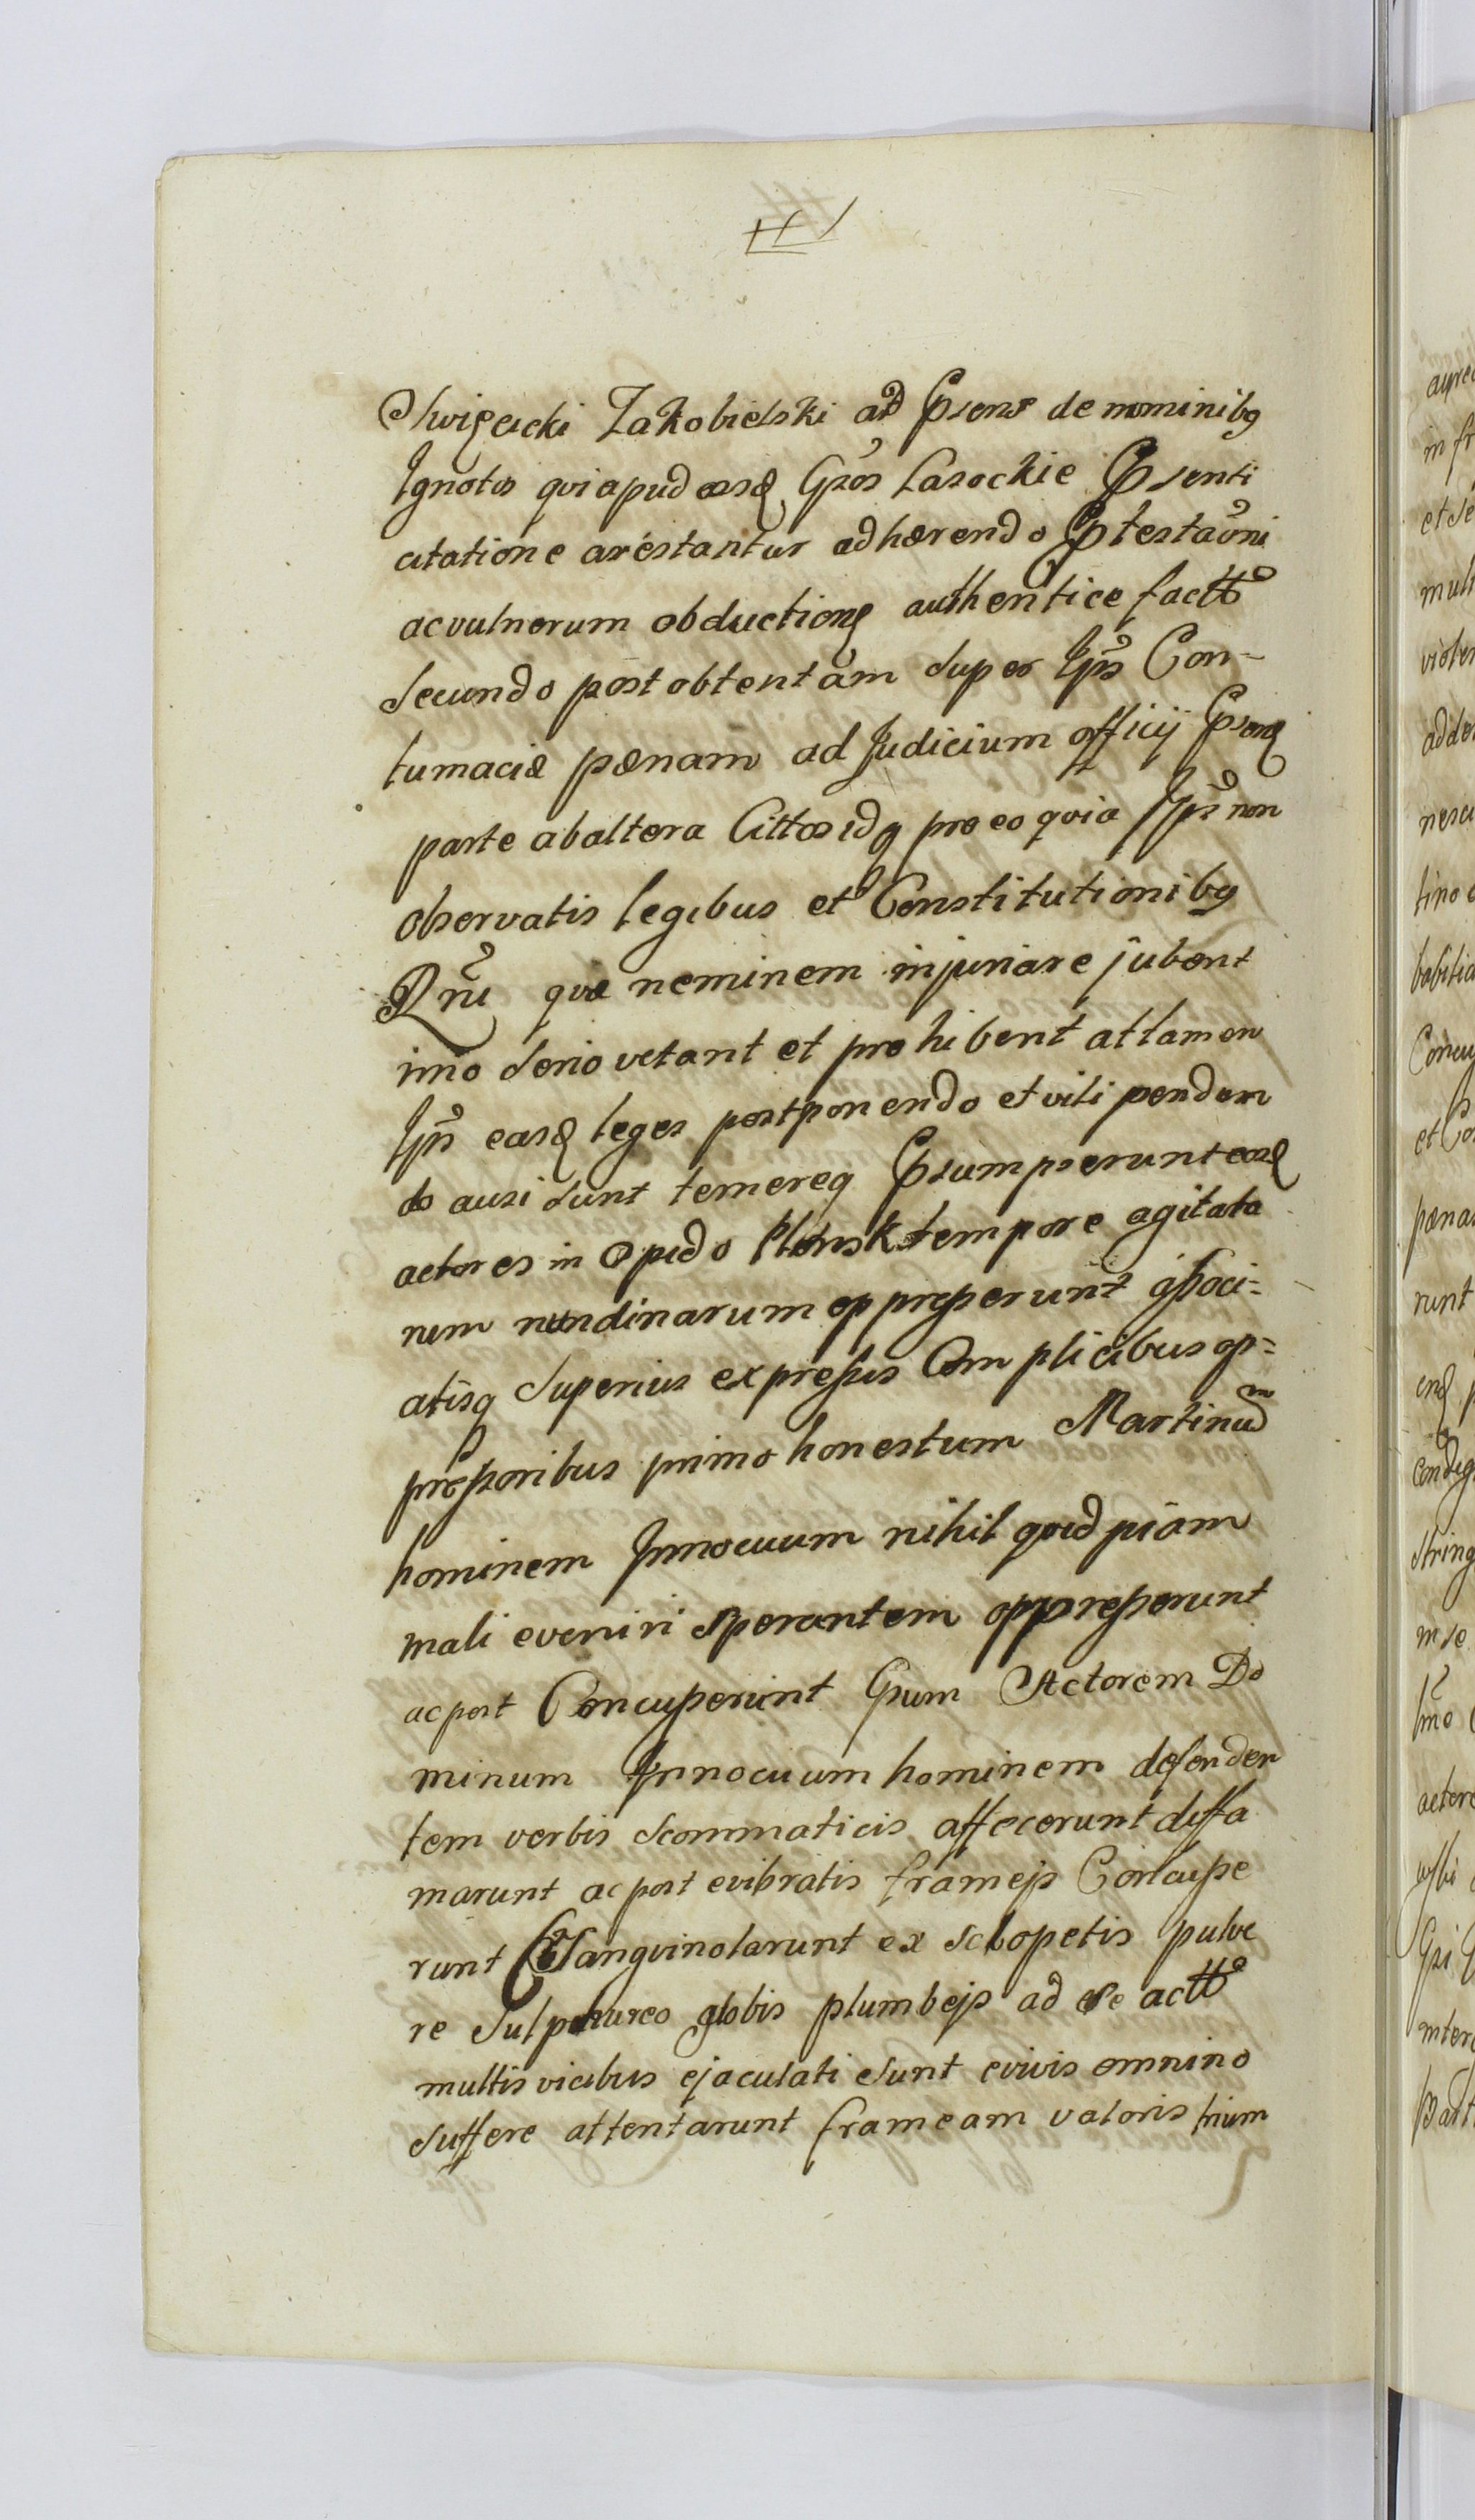 Swięcicki Zakobielski ad Psens de nominibq
Ignotos qui apud eosd Gsos Lasockie Psenti
citatione arestantur adhærendo Ptestaoni
ac vulnerum obductione authentice factt
Secundo post obtentam super Ipis Con-
tumaciæ pænam ad Judicium officij Psens
parte ab altera Cittos idq pro eo quia Ipi non
observatis legibus et Constitutionibq
Rni quæ neminem injuriare jubent
imo serio vetant et prohibent attamen
Ipi easd leges postponendo et vili penden
do ausi sunt temereq Psumpserunt eosd
actores in Opido Plonsk tempore agitata
rum nundinarum oppresserunt associ=
atisq superius expressis Complicibus op=
pressoribus primo honestum Martinum
hominem Innocuum nihil quidpiam
mali eveniri sperantem oppresserunt
ac post Concusserunt Gsum Actorem Do
minum Innocuum hominem defenden
tem verbis scommaticis affecerunt diffa
marunt ac post evibratis frameis Concusse
runt Csangvinolarunt ex sclopetis pulve
re sulphureo globis plumbejs ad se actt
multis vicibus ejaculati sunt e vivis omnino
suffere attentarunt frameam valoris trium